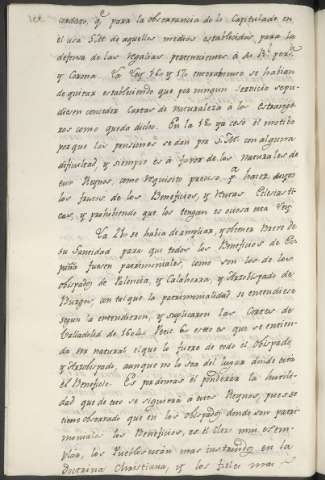 cordem, q.e para la observancia de lo Capitulado en
el usa S.M. de aquellos medios establecidos para la
defensa de las Regalías pertenecientes á su R.l
y Corona. La Ley 16 y 17
de quitar estableciendo que por ningun servicio se pu-
diesen conceder Cartas de Naturaleza á los Estrange-
ros como queda dicho. En la 18 ya cesó el motivo
porque las pensiones se dan por S.M. con alguna
dificultad, y siempre es á favor de los Naturales de
sus Reynos, como requisito preciso p.a hacer suyos
los frutos de los Beneficios, y Rentas Eclesiasti-
cas, y prohibiendo que los tengan es ociosa esta Ley
La 21 se habia de ampliar, y obtener Breve de
su Santidad para que todos los Beneficios de Es-
paña fuesen patrimoniales, como son los de los
obispados de Palencia, y Calahorra, y Arzobispado de
Burgos, con tal que la patrimonialidad se entendiese
segun la entendieron, y suplicaron las Cortes de
Valladolid de 1604. Petic. 6 esto es que se entien-
da ser natural el que lo fuere de todo el obispado,
y Arzobispado, aunque no lo sea del lugar donde está
el Beneficio. Es
dad que de esto se seguiria á estos Reynos, pues se
tiene observado que en los obispados donde son patri-
moniales los Beneficios, es el Clero
los Pueblos están mas instruidos en la
Doctrina Christiana, y los fieles mas